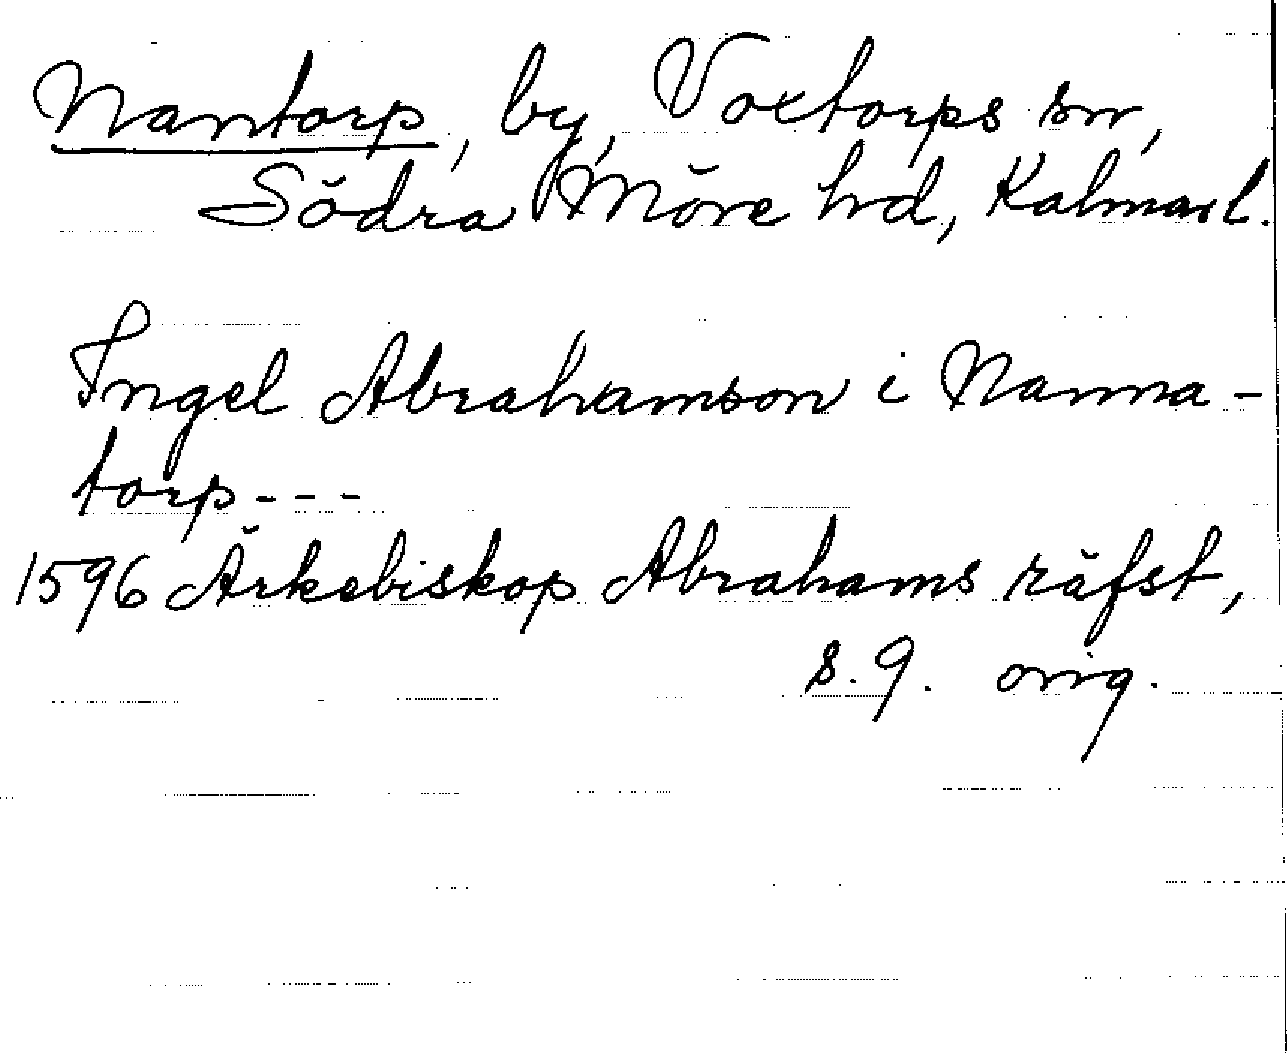 Nantorp, by, Voxtorps sn,
Södra Möre hd, Kalmar l.
Ingel Abrahamson i Nanna-
torp - - -
1596 Ärkebiskop Abrahams räfst,
s. 9. orig.